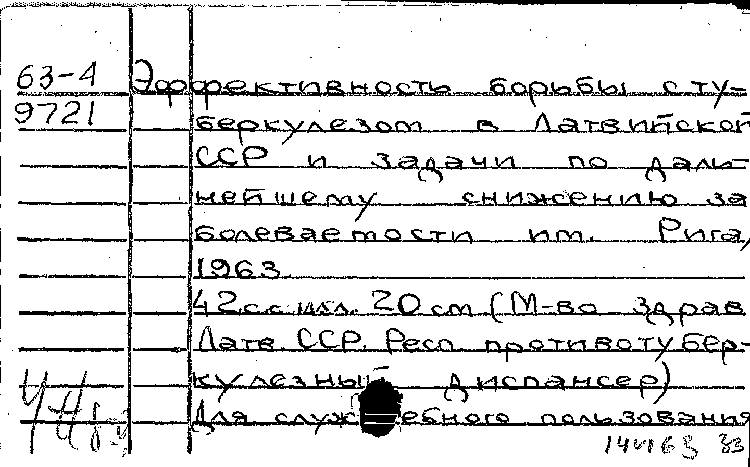 63-4 Эффективность борьбы с ту-
9721 беркулезом в Латвийской
ССР и задачи по даль-
нейшему снижению за
болеваемости им. Рига,
1963.
42 с.с илл. 20 см (М-во здрав
Латв. ССР. Респ противотубер-
кулезный диспансер)
Для служебного пользования
14VI63 33